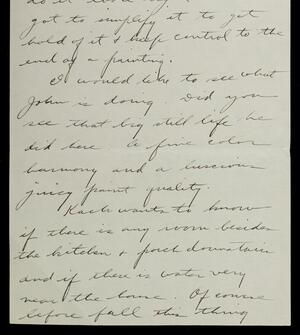 got to simplify it to get
hold of it & keep control to the
end of a painting.
I would like to see what
John is doing. Did you
see that big still life he
did here. A fine color
harmony and a luscious
juicy paint quality.
wants to know
if there is any room besides
the kitchen & porch downstairs
and if there is water very
near the house. Of course
before fall this thing